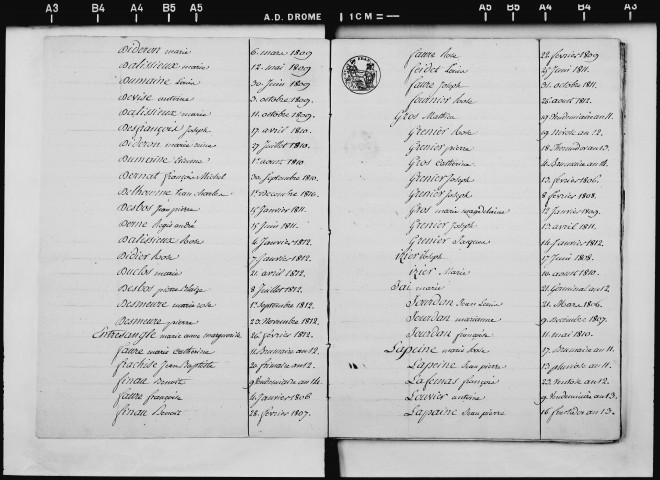 A3 B4 A4 B5 A5 A.D. DROME 1CM= A5 B5 A4 B4 A3
Dideron marie 6 mars 1809
Dalissieux marie 12 mai 1809
Dumaine Louise 30 Juin 1809
Devise antoine 3 octobre 1809.
Dalissieux marie 11 octobre 1809.
Desfrançois Joseph 17 avril 1810.
Dideron marie 27 Juillet 1810.
Dumaine Etienne 1er aout 1810
Dernat françois Michel 30 Septembre 1810.
Delhomme Jean Charles 1er decembre 1810.
Desbos Jean pierre 15 Janvier 1811.
Derne Regis andré 15 Juin 1811.
Dalissieux Rose 4 Janvier 1812.
Didier Rose 7 Janvier 1812.
Duclos marie 21 avril 1812.
Desbos pierre 8 Juillet 1812.
Desmeure marie rose 1er Septembre 1812.
Desmeure pierre 20 Novembre 1812.
Entresangle marie anne marguerite 26 février 1812.
faure marie Catherine 11 Brumaire an 12.
frachise Jean Baptiste 20 frimaire an 12.
finau Benoit 9 Vendemiaire an 14.
faure françoise 4 Janvier 1806
finau Benoit 28 février 1807.
faure Rose 22 février 1809.
feidel Louise 25 Juin 1811.
faure Joseph 31 octobre 1811.
fournier Rose 26 aout 1812.
Gros Mathieu 19 Vendemiaire an 11.
Grenier Rose 19 Nivose an 12.
Grenier pierre 18 Thermidor an 13.
Gros Catherine 4 Brumaire an 14.
Grenier Joseph 13 février 1806.
Grenier Joseph 8 février 1808.
Gros marie magdelaine 12 Janvier 1809.
Grenier Joseph 13 avril 1811.
Grenier Jacques 14 Janvier 1812.
izier Joseph 17 Juin 1808.
izier Marie 10 aout 1810.
Jai marie 21 Germinal an 12.
Jourdan Jean Louis 21 Mars 1806.
Jourdan marianne 9 Novembre 1807.
Jourdan françoise 11 mai 1810.
Lapeine marie Rose 17 Brumaire an 11.
Lapeine Jean pierre 13 pluviose an 11.
Lafumas françois 23 Ventose an 12.
Louvier antoine 9 Vendemiaire an 13.
Lapaine Jean pierre 16 fructidor an 13.